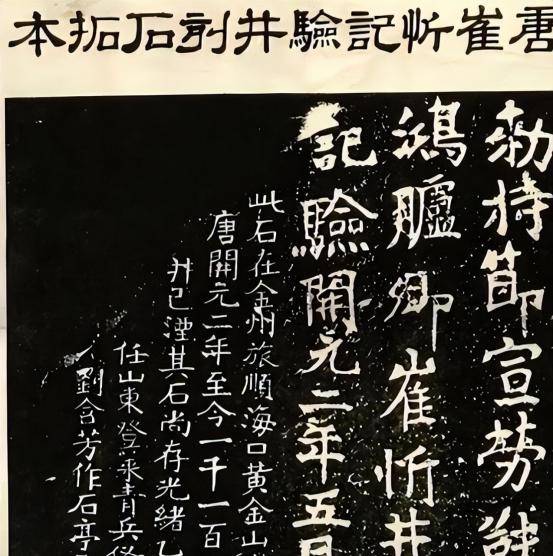 唐崔忻記驗井刻石拓本
勅持節宣勞靺
鴻臚卿崔忻井
記驗開元二年五月
此石在金州旅順海口黃金山
唐開元二年至今一千一百
井已湮其石尚存光緒乙
任山東登萊青兵備
人劉含芳作石亭